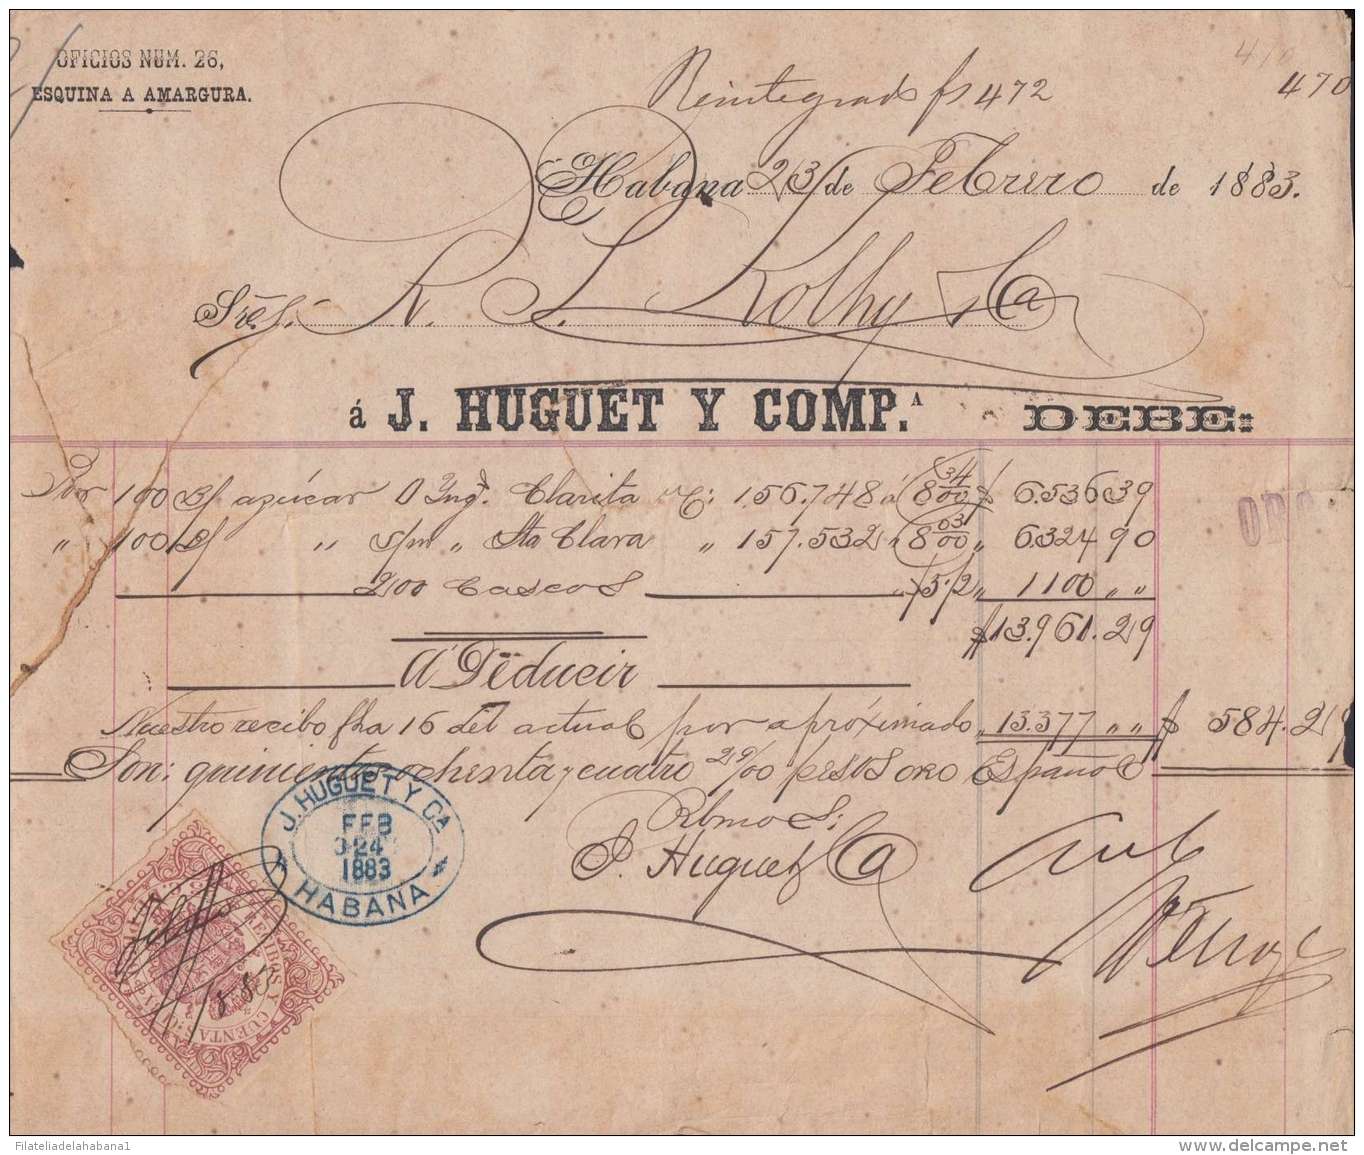 OFICIOS NUM. 26,
ESQUINA A AMARGURA.
Reintegrado fs 472
470
Habana 23 de Febrero de 1883.
Sres. R. L. Kolhy y Ca
á J. HUGUET Y COMP.A DEBE:
Por 100 Bs/ azúcar D Ingo. Clarita @: 156.748 á 8 34/00 $ 6.536 39
" 100 Bs/ " s/m " Sta Clara " 157.532 " 8 03/00 " 6324 90
200 Cascos " $5½ " 1100 " "
$13.961.29
A Deducir
Nuestro recibo fha 16 del actual por aproximado " 13.377 " " $ 584.29
Son: quinientos ochenta y cuatro 29/00 pesos oro Español
Rbmos S:
J. Huguet y Ca
J. HUGUET Y CA
FEB
24
1883
HABANA
RECIBOS Y CUENTAS
1883
Filateliadelahabana1
delcampe.net